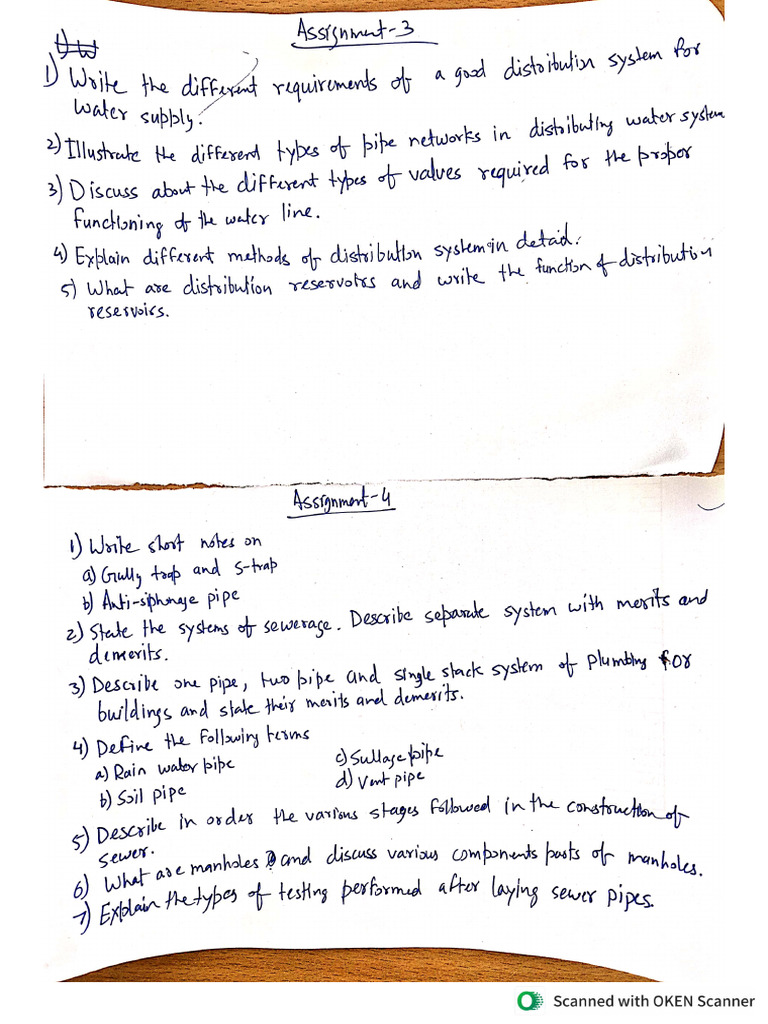 Assignment-3
1) Write the different requirements of a good distribution system for
water supply.
2) Illustrate the different types of pipe networks in distributing water system
3) Discuss about the different types of values required for the proper
functioning of the water line.
4) Explain different methods of distribution system in detail.
5) What are distribution reservoirs and write the function of distribution
reservoirs.
Assignment-4
1) Write short notes on
a) Gully trap and S-trap
b) Anti-siphonage pipe
2) State the systems of sewerage. Describe separate system with merits and
demerits.
3) Describe one pipe, two pipe and single stack system of plumbing for
buildings and state their merits and demerits.
4) Define the following terms
a) Rain water pipe
c) Sullage pipe
b) Soil pipe
d) Vent pipe
5) Describe in order the various stages followed in the construction of
sewer.
6) What are manholes and discuss various components parts of manholes.
7) Explain the types of testing performed after laying sewer pipes.
Scanned with OKEN Scanner